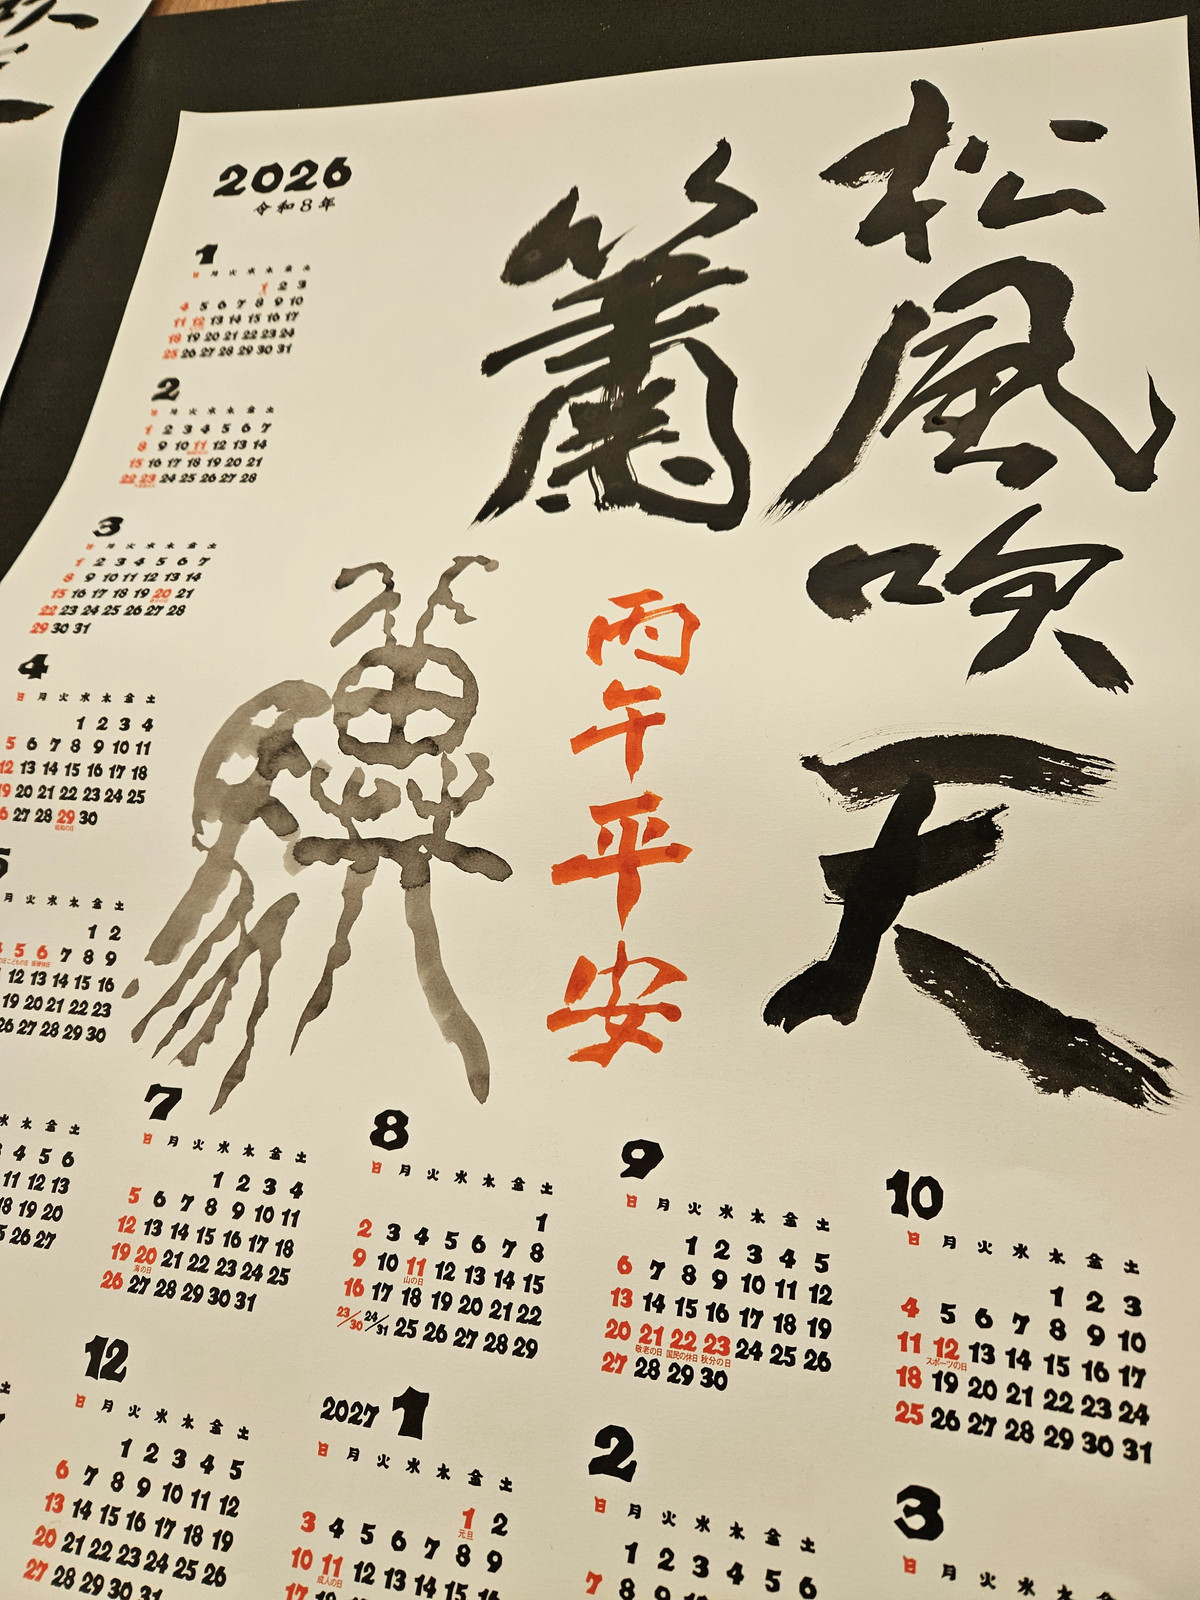 松風吹天
簫
丙午平安
2026
令和8年
1
日 月 火 水 木 金 土
1 2 3
4 5 6 7 8 9 10
11 12 13 14 15 16 17
18 19 20 21 22 23 24
25 26 27 28 29 30 31
2
日 月 火 水 木 金 土
1 2 3 4 5 6 7
8 9 10 11 12 13 14
15 16 17 18 19 20 21
22 23 24 25 26 27 28
3
日 月 火 水 木 金 土
1 2 3 4 5 6 7
8 9 10 11 12 13 14
15 16 17 18 19 20 21
22 23 24 25 26 27 28
29 30 31
4
日 月 火 水 木 金 土
1 2 3 4
5 6 7 8 9 10 11
12 13 14 15 16 17 18
19 20 21 22 23 24 25
27 28 29 30
昭和の日
5
月 火 水 木 金 土
1 2
5 6 7 8 9
こどもの日 振替休日
12 13 14 15 16
19 20 21 22 23
26 27 28 29 30
木 金 土
4 5 6
11 12 13
18 19 20
26 27
7
日 月 火 水 木 金 土
1 2 3 4
5 6 7 8 9 10 11
12 13 14 15 16 17 18
19 20 21 22 23 24 25
海の日
26 27 28 29 30 31
8
日 月 火 水 木 金 土
1
2 3 4 5 6 7 8
9 10 11 12 13 14 15
山の日
16 17 18 19 20 21 22
23/30 24/31 25 26 27 28 29
9
日 月 火 水 木 金 土
1 2 3 4 5
6 7 8 9 10 11 12
13 14 15 16 17 18 19
20 21 22 23 24 25 26
敬老の日 国民の休日 秋分の日
27 28 29 30
10
日 月 火 水 木 金 土
1 2 3
4 5 6 7 8 9 10
11 12 13 14 15 16 17
スポーツの日
18 19 20 21 22 23 24
25 26 27 28 29 30 31
12
日 月 火 水 木 金 土
1 2 3 4 5
6 7 8 9 10 11 12
13 14 15 16 17 18 19
20 21 22 23 24 25 26
27 28 29 30 31
2027 1
日 月 火 水 木 金 土
1 2
元旦
3 4 5 6 7 8 9
10 11 12 13 14 15 16
成人の日
17
2
日 月 火 水 木 金 土
1 2 3 4 5 6
7 8 9
3
日 月 火 水 木